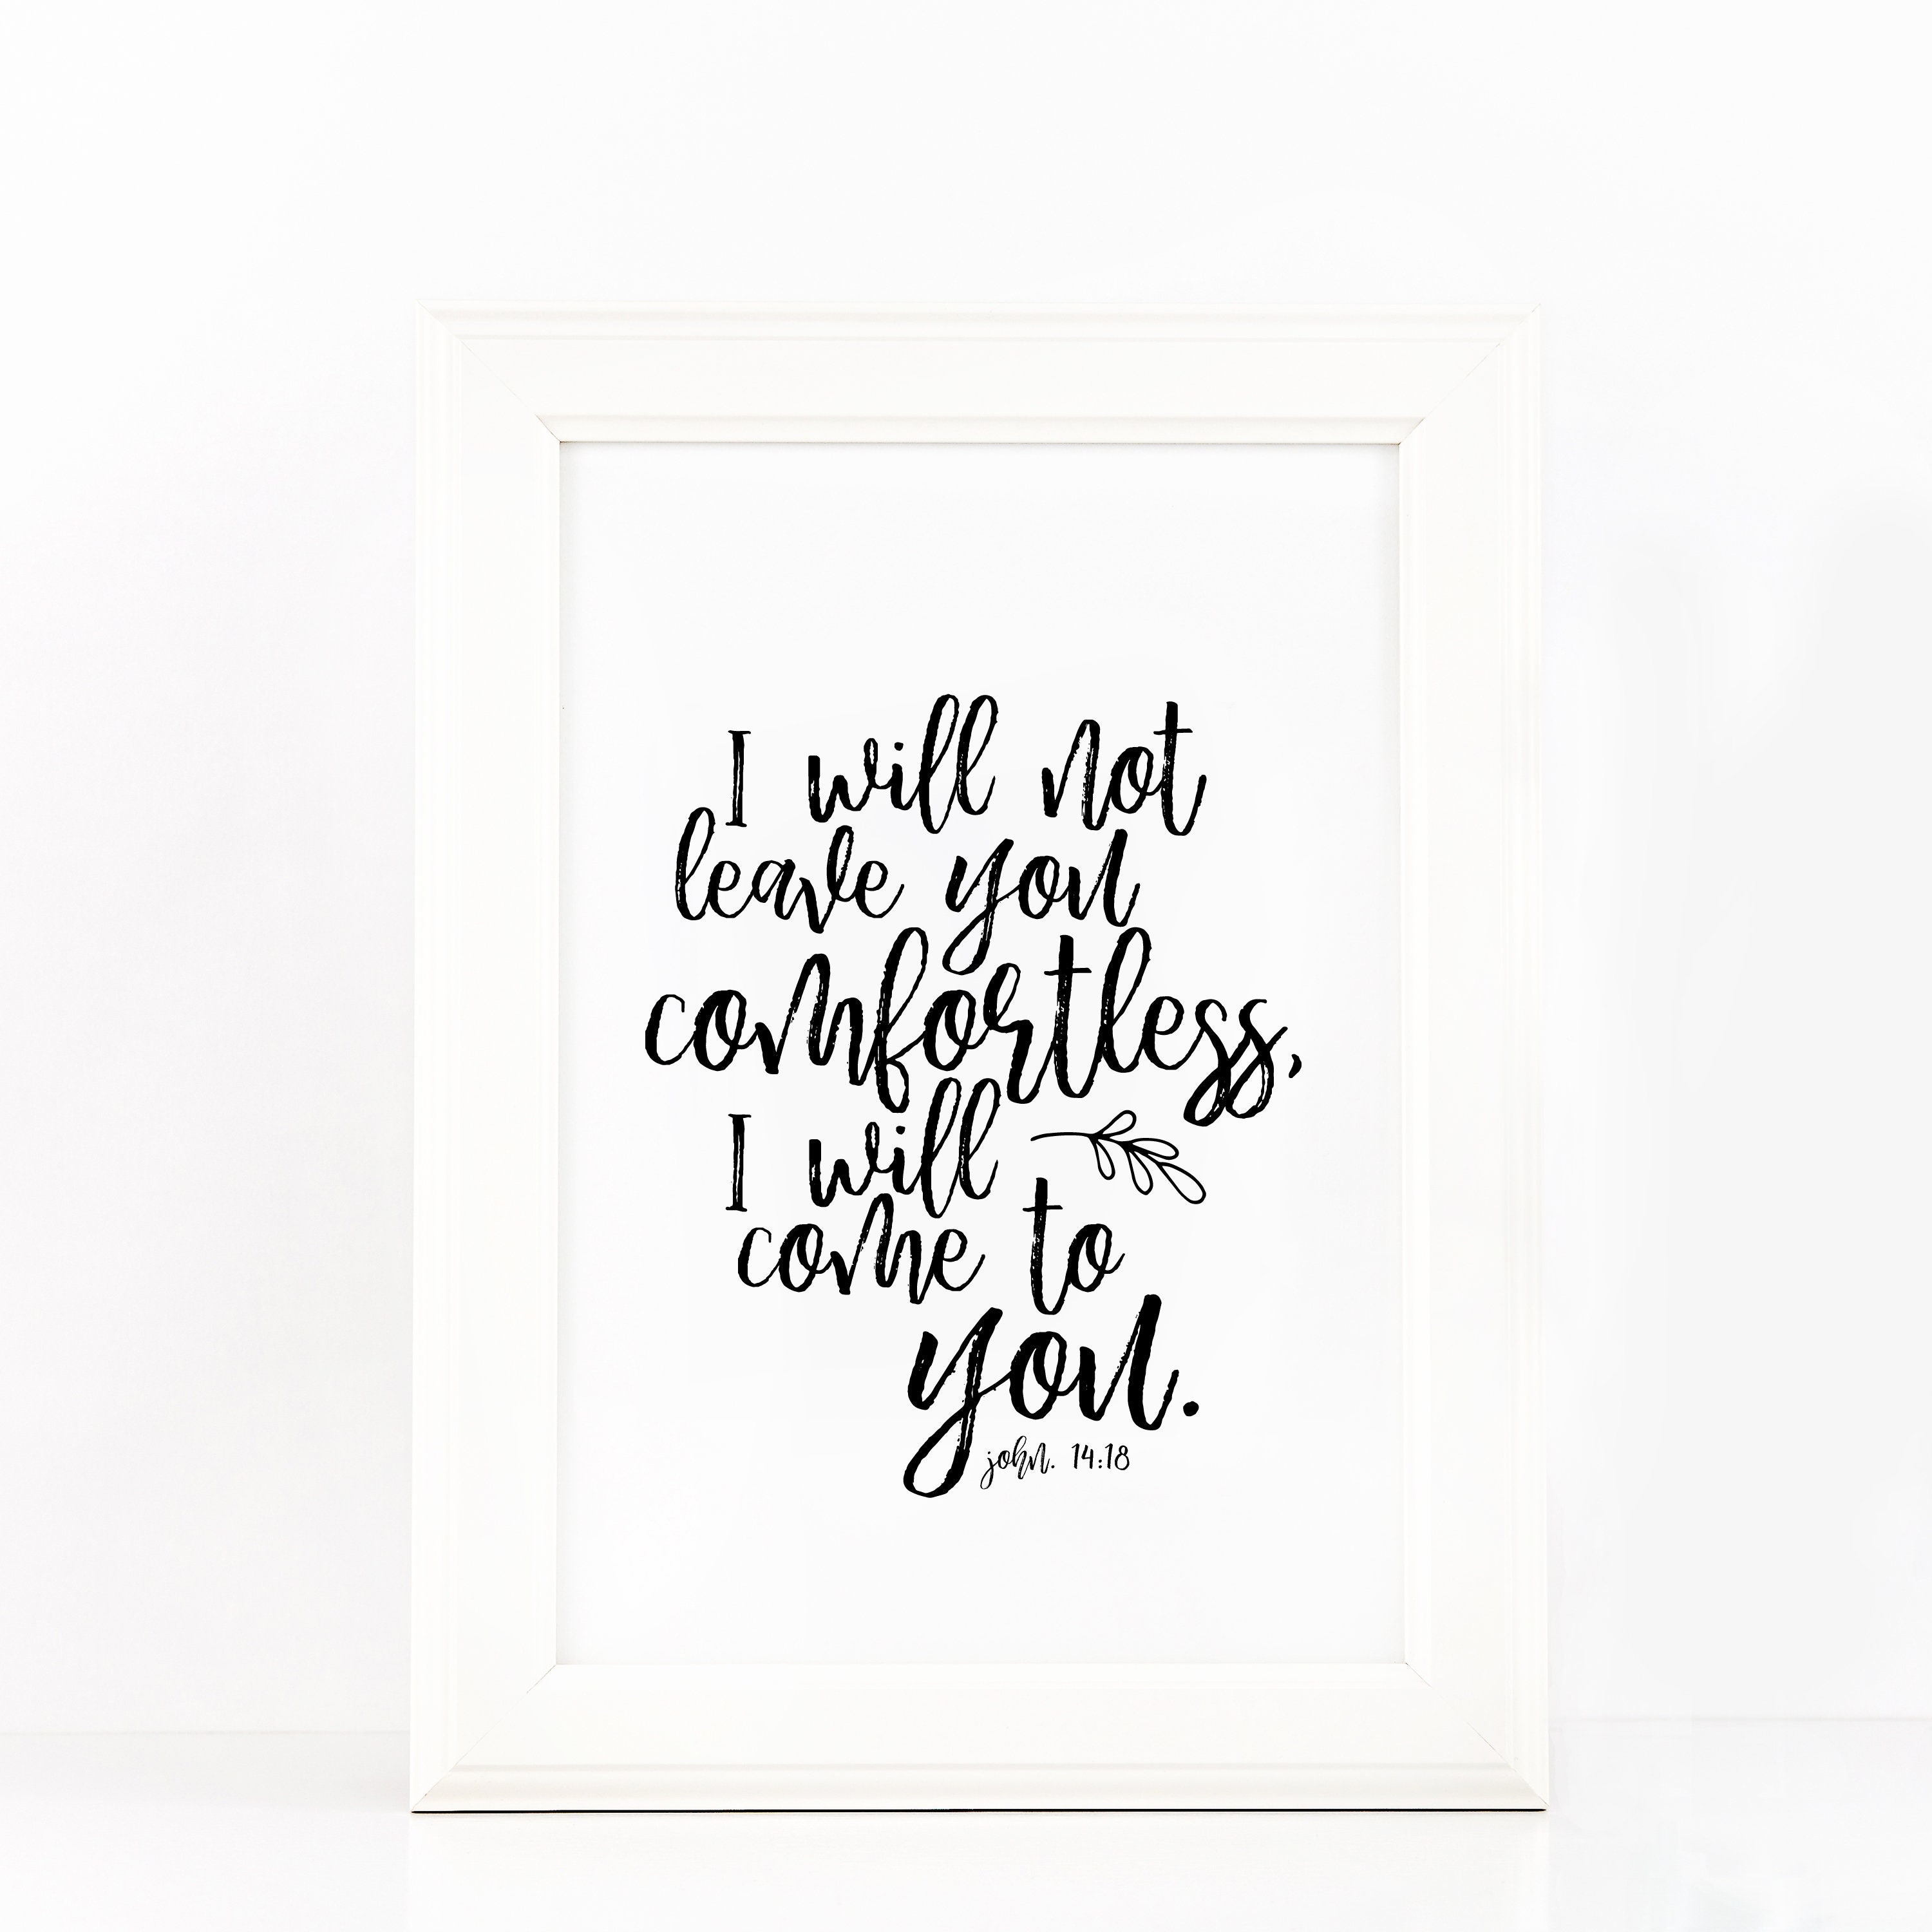 I will not
leave you
comfortless,
I will
come to
you.
john. 14:18